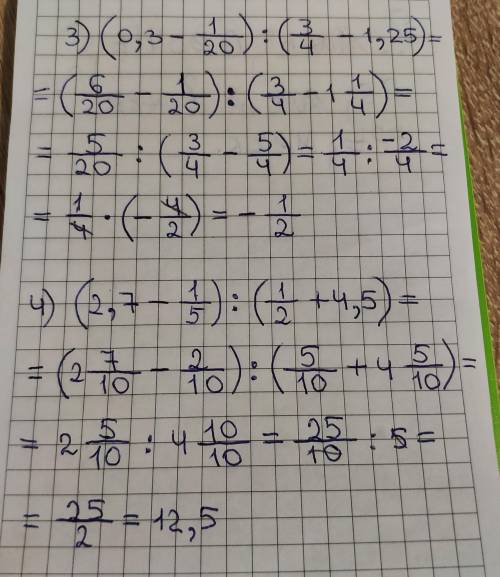 3) (0,3 - 1/20) : (3/4 - 1,25) =
= (6/20 - 1/20) : (3/4 - 1 1/4) =
= 5/20 : (3/4 - 5/4) = 1/4 : -2/4 =
= 1/4 · (- 4/2) = - 1/2
4) (2,7 - 1/5) : (1/2 + 4,5) =
= (2 7/10 - 2/10) : (5/10 + 4 5/10) =
= 2 5/10 : 4 10/10 = 25/10 : 5 =
= 25/2 = 12,5